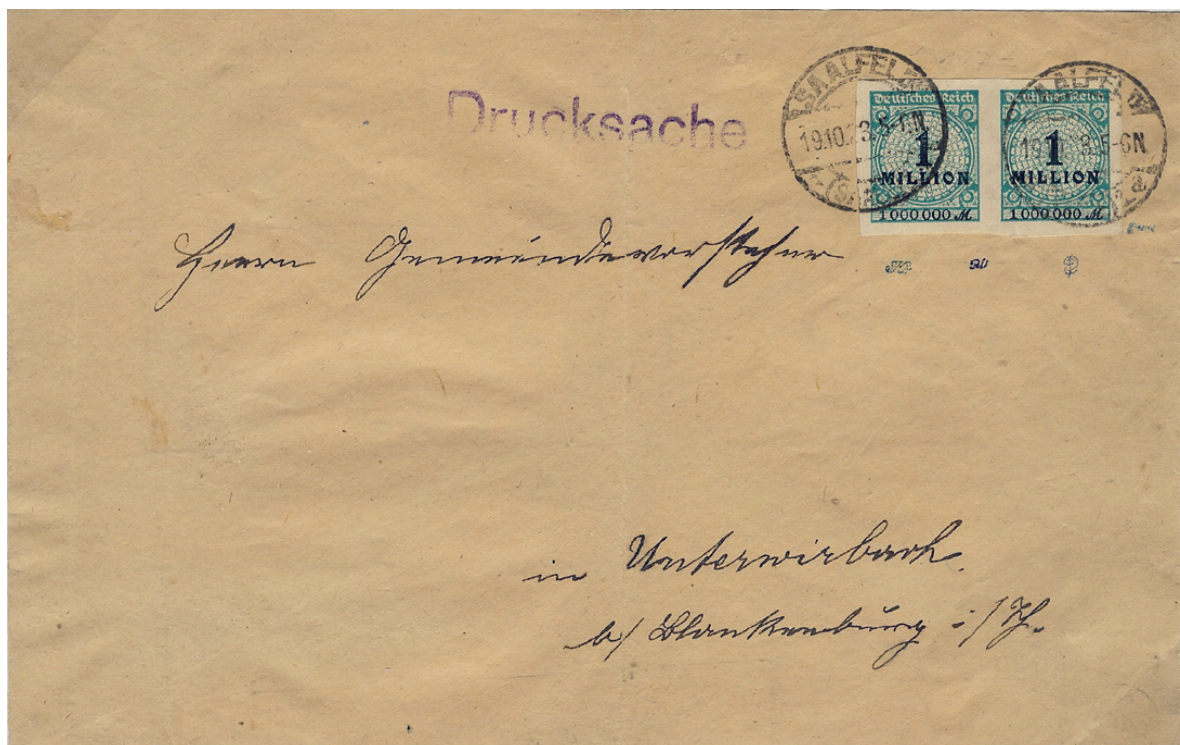 Drucksache
SAALFELD 19.10.23.5-6N. (Saale)
SAALFELD 19. 3.5-6N a
Deutsches Reich
1
MILLION
1000000 M
Deutsches Reich
1
MILLION
1000000 M
Herrn Gemeindevorsteher
in Unterwirbach.
b/ Blankenburg i/Th.